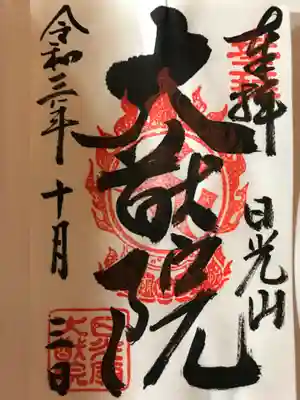 奉拝
日光山
大猷院
令和三年十月三日
日光山
大猷院